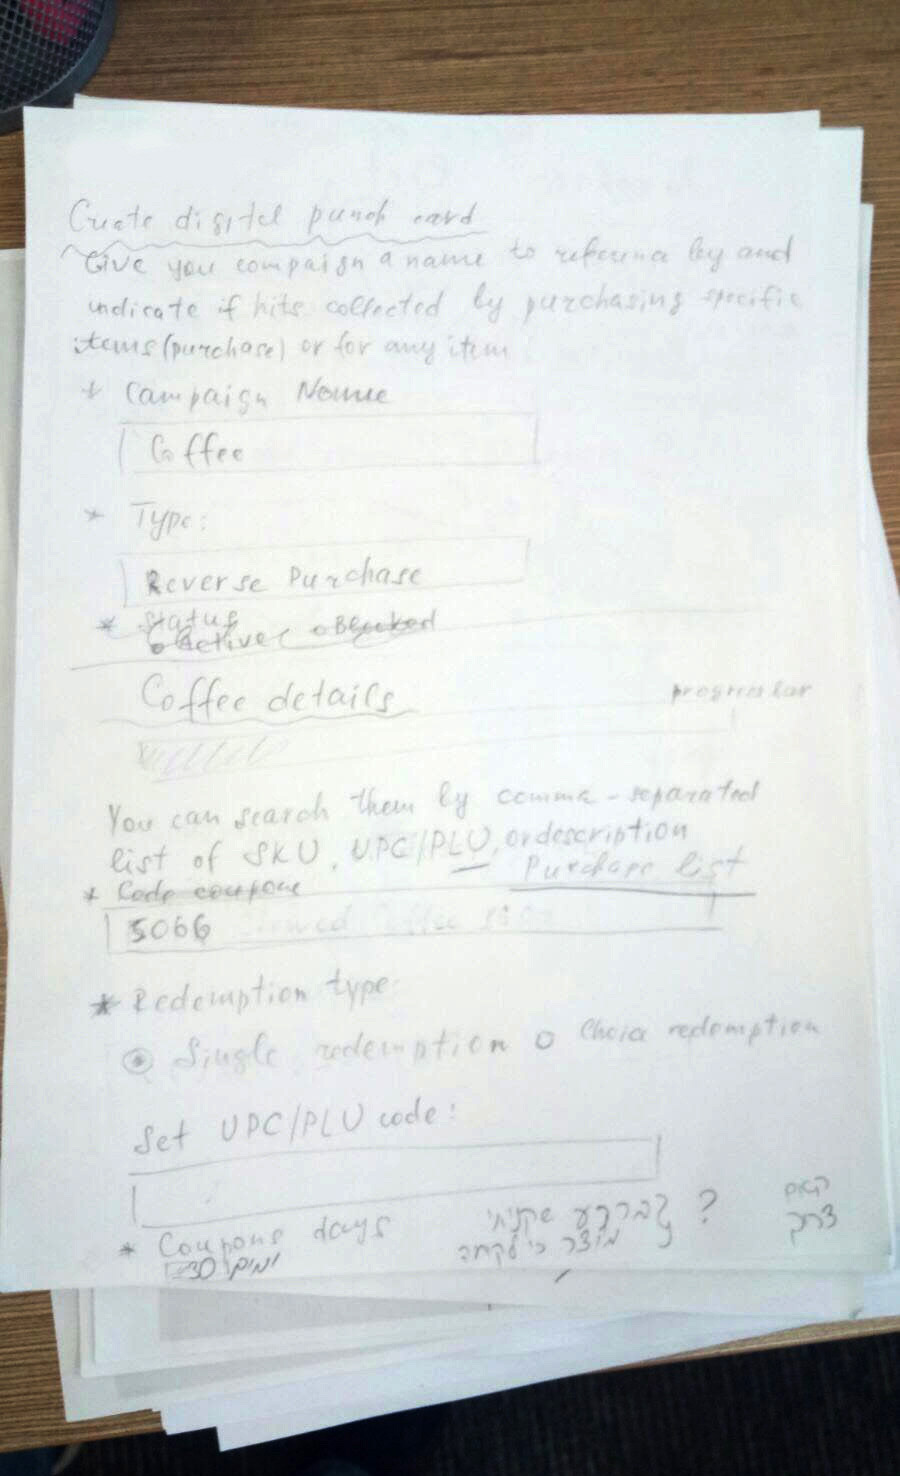 Create digital punch card
Give you compaign a name to reference by and
indicate if hits collected by purchasing specific
items (purchase) or for any item
* Campaign Name
Coffee
* Type:
Reverse Purchase
* Status
Active Blocked
Coffee details
progress bar
You can search them by comma-separated
list of SKU, UPC/PLU, or description
Purchase list
* Code coupone
5066
* Redemption type
Single redemption o Choice redemption
Set UPC/PLU code:
* Coupons days
30 ימים
ברגע שקניתי ?
מוצר
האם
צריך